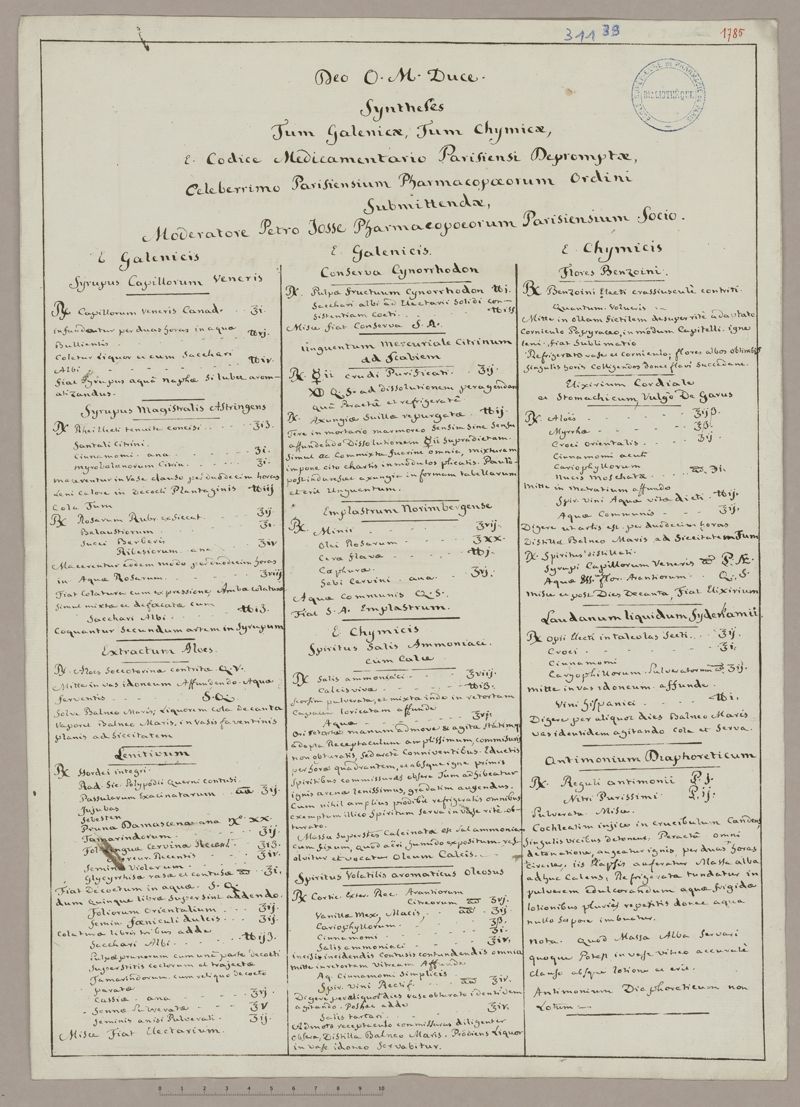 311 39
1785
BIBLIOTHÈQUE
Deo O. M. Duce.
Syntheses
Tum Galenicæ, Tum Chymicæ,
E Codice Medicamentario Parisiensi Depromptæ,
Celeberrimo Parisiensium Pharmacopœorum Ordini
Submittendæ,
Moderatore Petro Josse Pharmacopœorum Parisiensium Socio.
E Galenicis
Syrupus Capillorum Veneris
℞ Capillorum Veneris Canad. ℥i.
infundantur per duas horas in aquæ
Bullientis ℔vj.
Coletur liquor et cum Sacchari
Albi ℔iv.
Fiat Syrupus aquâ Naphæ Si lubet arom-
atizandus.
Syrupus Magistralis Astringens
℞ Rhei Electi tenuiter concisi
Santali Citrini.
Cinnamomi ana ʒi.
Myrobalanorum Citrin. ʒi.
macerentur in Vase clauso per duodecim horas
Leni Calore in decocti Plantaginis ℔iij
Cola Tum
℞ Rosarum Rubr. exsiccat. ℥ij.
Balaustiorum ℥i.
Succi Berberis
Ribesiorum ana ℥iv
Macerentur eodem modo per duodecim horas
in Aquæ Rosarum ℥viij
Fiat Colatura cum expressione Ambæ Colaturæ
Simul mixtæ et defæcatæ cum
Sacchari Albi
Coquantur Secundum artem in Syrupum
Extractum Aloes.
℞ Aloes Soccotorinæ contritæ Q.V.
Mitte in vas idoneum Affundendo Aquæ
ferventis S.Q.
Solve Balneo Maris, Liquorem Cola decanta
Vapora Balneo Maris, in Vasis faventinis
planis ad Siccitatem
Lenitivum
℞ Hordei integri
Rad. Sic. Polypodii Querni Contusi.
Passularum Exacinatarum aa ℥ij.
Jujubas
Sebesten
Pruna Damascena ana N° XX.
Tamarindorum ℥ij.
Seminis Violarum
Glycyrrhisæ rasæ et contusæ aa ℥i.
Fiat Decoctum in aquæ S.Q.
dum quinque libræ Supersint addendo.
Foliorum Orientalium ℥ij.
Semin. Fœniculi dulcis ʒij.
Colaturæ libris tribus adde
Sacchari Albi
Pulpæ prunorum cum unâ parte decocti
Superstitis coctorum et trajectæ
Tamarindorum, cum reliquo decocto
paratæ
Cassiæ ana ℥vj.
Sennæ Pulveratæ ℥v
Seminis anisi Pulverati ʒij.
Misce Fiat Electarium.
E Galenicis.
Conserva Cynorrhodon
℞ Pulpæ Fructuum Cynorrhodon ℔i.
Sacchari albi ad Electarii Solidi con-
Sistentiam Cocti.
Misce fiat Conserva S.A.
Unguentum Mercuriale Citrinum
ad Scabiem
℞ ☿ii crudi Purificati ℥ij.
Q.S. ad dissolutionem peragendam
quâ Peractâ et refrigeratâ
℞ Axungiæ Suillæ repurgatæ ℔ij.
Tere in mortario marmoreo Sensim Sine Sensu
affundendo Dissolutionem ☿ii Supradictam.
Simul ac Commixta fuerint omnia, mixturam
impone cito chartis in modulos plicatis. Paulò
post indurescet axungia in formam tabellarum
et erit Unguentum.
Emplastrum Norimbergense
℞ Minii ℥vij.
Olei Rosarum ℥xx.
Ceræ Flavæ ℔j.
Caphuræ
Sebi Cervini ana ℥vj.
Aquæ Communis Q.S.
Fiat S.A. Emplastrum.
E Chymicis
Spiritus Salis Ammoniaci
cum Calce
℞ Salis ammoniaci ℥viij.
Calcis vivæ
Seorsim pulverata, et mixta indo in retortam
Capacem loricatam affunde
Aquæ ℥vj.
Ori retortæ manum admove & agita Statimque
adapta Receptaculum amplissimum, commissuris
non obturatis, Sed arctè Conniventibus. Eductis
per horæ quadrantem, et absque igne primis
Spiritibus commissuras obture Tum adhibeatur
ignis arenæ lenissimus, gradatim augendus.
Cum nihil amplius prodibit refrigeratis omnibus
exemptum illico Spiritum Serva in Vase ritè ob-
turato.
Massa Superstes Calcinata est sal ammoniacum
cum fixum, quod aëri humido expositum res-
olvitur et vocatur Oleum Calcis.
Spiritus Volatilis aromaticus Oleosus
℞ Cortic. Exter. Rec. Arantiorum
Citreorum aa ʒvj.
Vanillæ Mex, Macis, aa ʒij
Cariophyllorum
Cinnamomi ʒi.
Salis ammoniaci ℥iv.
incisis incidendis Contusis contundendis omnia
mitte in retortam Vitream Affunde
Aq. Cinnamomi Simplicis
Spir. Vini Rectif. aa ℥iv.
Digere per aliquot dies vase obturato identidem
agitando. Postea adde
Salis tartari ℥iv.
Admoto receptaculo commissuras diligenter
obtura, Distilla Balneo Maris. Prodiens Liquor
in vase idoneo Servabitur.
E Chymicis
Flores Benzoini.
℞ Benzoini Electi crassiusculè contriti.
Quantum Volueris
Mitte in ollam fictilem desuper ritè adaptato
Corniculo Papyraceo, in modum Capitelli. igne
leni. fiat Sublimatio
Refrigerato vase et corniculo, flores albos obtinebis
Singulis horis Colligendos donec flavi Succedant.
Elixirium Cordiale
et Stomachicum, Vulgò De Garus
℞ Aloës
Myrrhæ
Croci Orientalis ʒij
Cinnamomi acuti
Cariophyllorum
Nucis Moschatæ aa ℈i.
Mitte in Matratium affundo
Spir. Vini Aqua vitæ dicti ℔ij.
Aquæ Communis ℥ij
Digere ut artis est. per duodecim horas
Distilla Balneo Maris ad Siccitatem Tum
℞ Spiritus distillati
Syrupi Capillorum Veneris aa P.Æ.
Aquæ flor. Arantiorum Q.S.
Misce et post Dies Decanta, Fiat Elixirium
Laudanum liquidum Sydenhamii
℞ Opii Electi in taleolas Secti ℥ij.
Croci ℥i.
Cinnamomi
Caryophillorum Pulveratorum aa ʒij.
mitte in vas idoneum affunde
Vini hispanici ℔i.
Digere per aliquot dies Balneo Maris
vas identidem agitando cola et Serva.
Antimonium Diaphoreticum
℞ Reguli antimonii P.j.
Nitri Purissimi P.iij.
Pulverata Misce.
Cochleatim injice in crucibulum Candens
Singulis vicibus detonent. Peractâ omni
detonatione, augeatur ignis per duas horas
Circiter, iis Elapsis auferatur Massa alba
adhuc Calens, Refrigerata tundatur in
pulverem edulcorandum aquâ frigidâ
lotionibus pluriès repetitis donec aqua
nullo Sapore imbuatur.
Nota. Quod Massa Alba Servari
quoque Potest in vase vitreo accuratè
clauso absque lotione et erit.
Antimonium Diaphoreticum non
Lotum
0 1 2 3 4 5 6 7 8 9 10